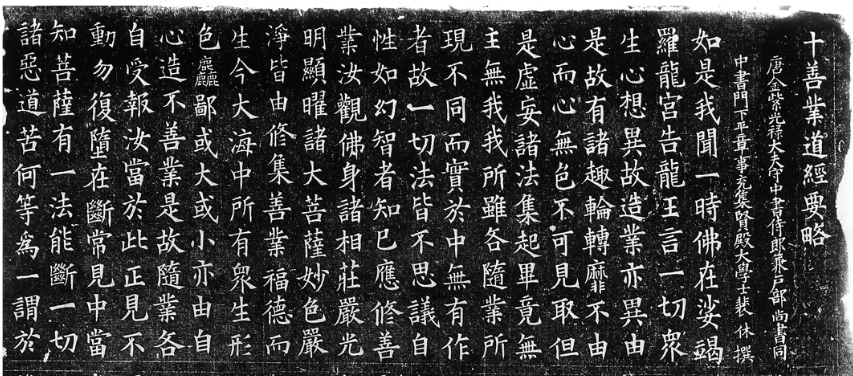 十善業道經要略
唐金紫光祿大夫守中書侍郎兼戶部尚書同
中書門下平章事充集賢殿大學士裴休撰
如是我聞一時佛在娑竭
羅龍宮告龍王言一切衆
生心想異故造業亦異由
是故有諸趣輪轉靡不由
心而心無色不可見取但
是虛妄諸法集起畢竟無
主無我我所雖各隨業所
現不同而實於中無有作
者故一切法皆不思議自
性如幻智者知已應修善
業汝觀佛身諸相莊嚴光
明顯曜諸大菩薩妙色嚴
淨皆由修集善業福德而
生今大海中所有衆生形
色麤鄙或大或小亦由自
心造不善業是故隨業各
自受報汝當於此正見不
動勿復墮在斷常見中當
知菩薩有一法能斷一切
諸惡道苦何等爲一謂於